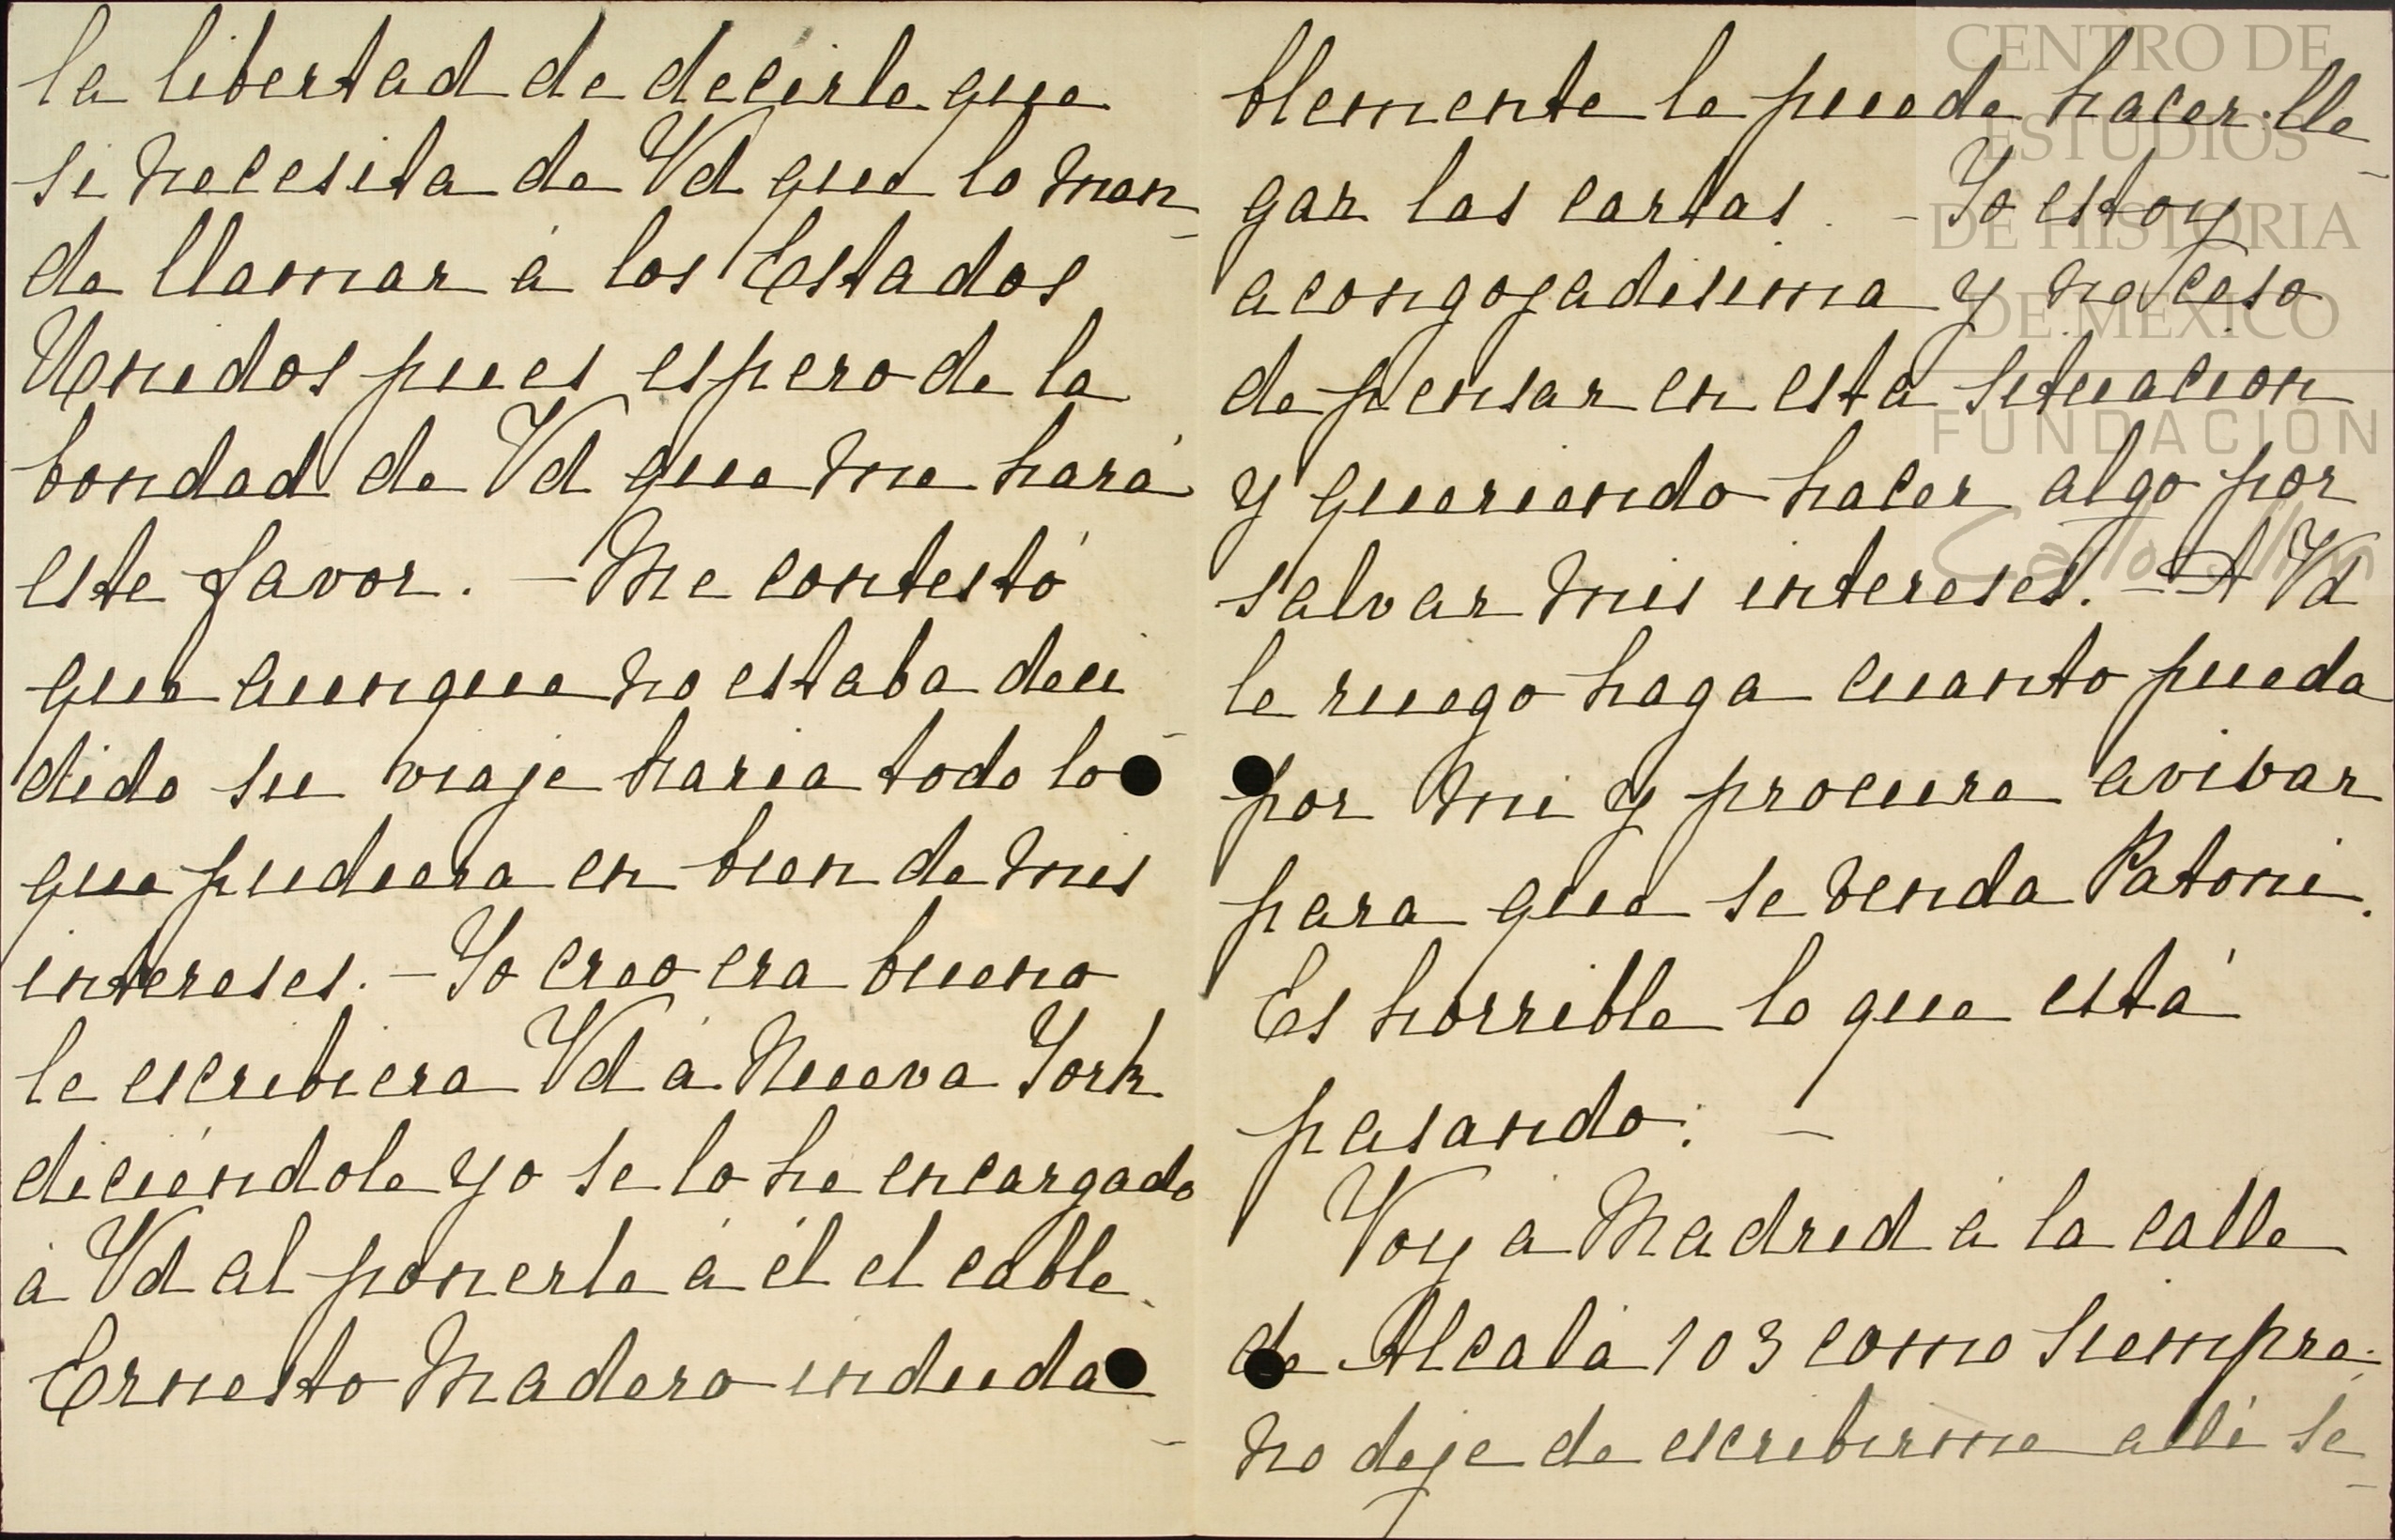 la libertad de decirle que
si necesita de Vd que lo man-
de llamar á los Estados
Unidos pues espero de la
bondad de Vd que me hará
este favor. — Me contestó
que aunque no estaba deci-
dido su viaje haria todo lo
que pudiera en bien de mis
intereses. — Yo creo era bueno
le escribiera Vd á Nueva York
diciéndole yo se lo he encargado
á Vd al ponerle á él el cable.
Ernesto Madero induda-
blemente le puede hacer lle-
gar las cartas. — Yo estoy
acongojadisima y no ceso
de pensar en esta situacion
y queriendo hacer algo por
salvar mis intereses. — A Vd
le ruego haga cuanto pueda
por mi y procure avivar
para que se venda Patoni.
Es horrible lo que está
pasando. —
Voy á Madrid á la calle
de Alcalá 103 como siempre;
no deje de escribirme allí se-
CENTRO DE
ESTUDIOS
DE HISTORIA
DE MÉXICO
FUNDACIÓN
Carlos Slim